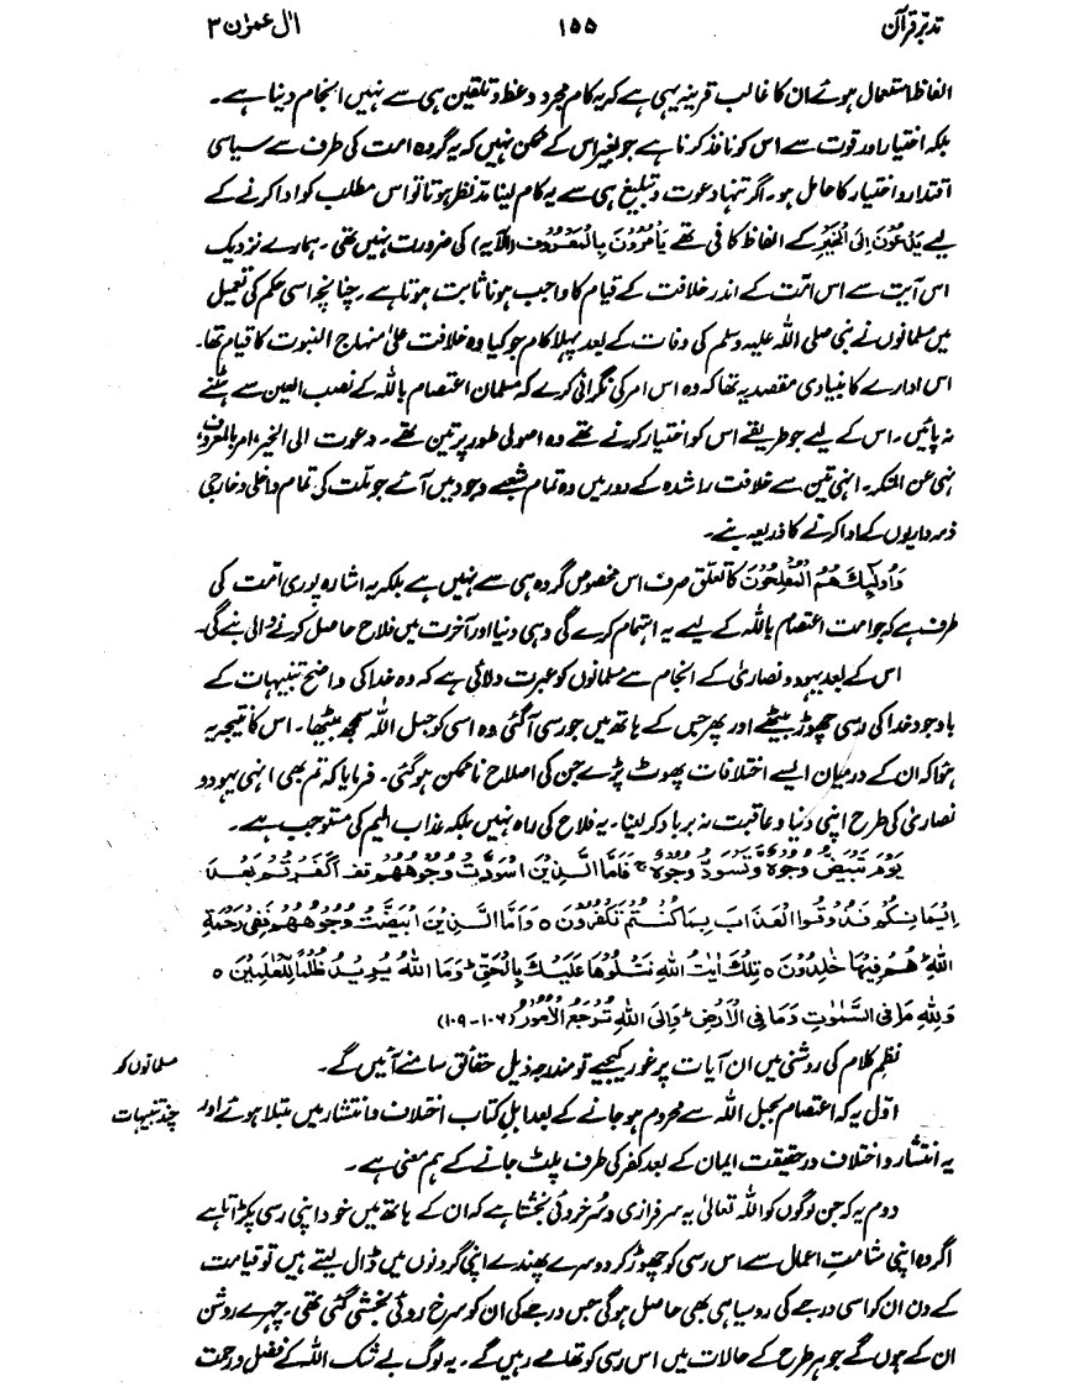 تدبّرِ قرآن ۱۵۵ اٰل عمرٰن ۳
الفاظ استعمال ہوئے ان کا غالب قرینہ یہی ہے کہ یہ کام مجرد وعظ و تلقین ہی سے نہیں انجام دینا ہے۔
بلکہ اختیار اور قوت سے اس کو نافذ کرنا ہے جو بغیر اس کے ممکن نہیں کہ یہ گروہ امت کی طرف سے سیاسی
اقتدار و اختیار کا حامل ہو۔ اگر تنہا دعوت و تبلیغ ہی سے یہ کام لینا مدّنظر ہوتا تو اس مطلب کو ادا کرنے کے
لیے یَدْعُوْنَ اِلَی الْخَیْرِ کے الفاظ کافی تھے یَاْمُرُوْنَ بِالْمَعْرُوْفِ (الآیہ) کی ضرورت نہیں تھی۔ ہمارے نزدیک
اس آیت سے اس امّت کے اندر خلافت کے قیام کا واجب ہونا ثابت ہوتا ہے۔ چنانچہ اسی حکم کی تعمیل
میں مسلمانوں نے نبی صلی اللہ علیہ وسلم کی وفات کے بعد پہلا کام جو کیا وہ خلافت علیٰ منہاج النبوت کا قیام تھا۔
اس ادارے کا بنیادی مقصد یہ تھا کہ وہ اس امر کی نگرانی کرے کہ مسلمان اعتصام باللہ کے نصب العین سے ہٹنے
نہ پائیں۔ اس کے لیے جو طریقے اس کو اختیار کرنے تھے وہ اصولی طور پر تین تھے۔ دعوت الی الخیر، امر بالمعروف،
نہی عن المنکر۔ انہی تین سے خلافت راشدہ کے دور میں وہ تمام شعبے وجود میں آئے جو ملّت کی تمام داخلی و خارجی
ذمہ داریوں کے ادا کرنے کا ذریعہ بنے۔
وَاُولٰٓئِکَ ھُمُ الْمُفْلِحُوْنَ کا تعلق صرف اس مخصوص گروہ ہی سے نہیں ہے بلکہ یہ اشارہ پوری امّت کی
طرف ہے کہ جو امت اعتصام باللہ کے لیے یہ اہتمام کرے گی وہی دنیا اور آخرت میں فلاح حاصل کرنے والی بنے گی۔
اس کے بعد یہود و نصاریٰ کے انجام سے مسلمانوں کو عبرت دلائی ہے کہ وہ خدا کی واضح تنبیہات کے
باوجود خدا کی رسی چھوڑ بیٹھے اور پھر جس کے ہاتھ میں جو رسی آگئی وہ اسی کو حبل اللہ سمجھ بیٹھا۔ اس کا نتیجہ یہ
ہوا کہ ان کے درمیان ایسے اختلافات پھوٹ پڑے جن کی اصلاح ناممکن ہوگئی۔ فرمایا کہ تم بھی انہی یہود و
نصاریٰ کی طرح اپنی دنیا و عاقبت نہ برباد کر لینا۔ یہ فلاح کی راہ نہیں بلکہ عذاب الیم کی مستوجب ہے۔
یَوْمَ تَبْیَضُّ وُجُوْهٌ وَّتَسْوَدُّ وُجُوْهٌ ۚ فَاَمَّا الَّذِیْنَ اسْوَدَّتْ وُجُوْھُھُمْ قف اَکَفَرْتُمْ بَعْدَ
اِیْمَانِکُمْ فَذُوْقُوا الْعَذَابَ بِمَا کُنْتُمْ تَکْفُرُوْنَ ہ وَاَمَّا الَّذِیْنَ ابْیَضَّتْ وُجُوْھُھُمْ فَفِیْ رَحْمَةِ
اللهِ ؕ ھُمْ فِیْھَا خٰلِدُوْنَ ہ تِلْکَ اٰیٰتُ اللهِ نَتْلُوْھَا عَلَیْکَ بِالْحَقِّ ؕ وَمَا اللهُ یُرِیْدُ ظُلْمًا لِّلْعٰلَمِیْنَ ہ
وَلِلهِ مَا فِی السَّمٰوٰتِ وَمَا فِی الْاَرْضِ ؕ وَاِلَی اللهِ تُرْجَعُ الْاُمُوْرُ (۱۰۶-۱۰۹)
نظم کلام کی روشنی میں ان آیات پر غور کیجیے تو مندرجہ ذیل حقائق سامنے آئیں گے۔ مسلمانوں کو
اوّل یہ کہ اعتصام بحبل اللہ سے محروم ہو جانے کے بعد اہلِ کتاب اختلاف و انتشار میں مبتلا ہوئے اور چند تنبیہات
یہ انتشار و اختلاف درحقیقت ایمان کے بعد کفر کی طرف پلٹ جانے کے ہم معنی ہے۔
دوم یہ کہ جن لوگوں کو اللہ تعالیٰ یہ سرفرازی و سُرخروئی بخشتا ہے کہ ان کے ہاتھ میں خود اپنی رسی پکڑاتا ہے
اگر وہ اپنی شامتِ اعمال سے اس رسی کو چھوڑ کر دوسرے پھندے اپنی گردنوں میں ڈال لیتے ہیں تو قیامت
کے دن ان کو اسی درجے کی روسیاہی بھی حاصل ہوگی جس درجے کی ان کو سرخ روئی بخشی گئی تھی۔ چہرے روشن
ان کے ہوں گے جو ہر طرح کے حالات میں اس رسی کو تھامے رہیں گے۔ یہ لوگ بے شک اللہ کے فضل و رحمت